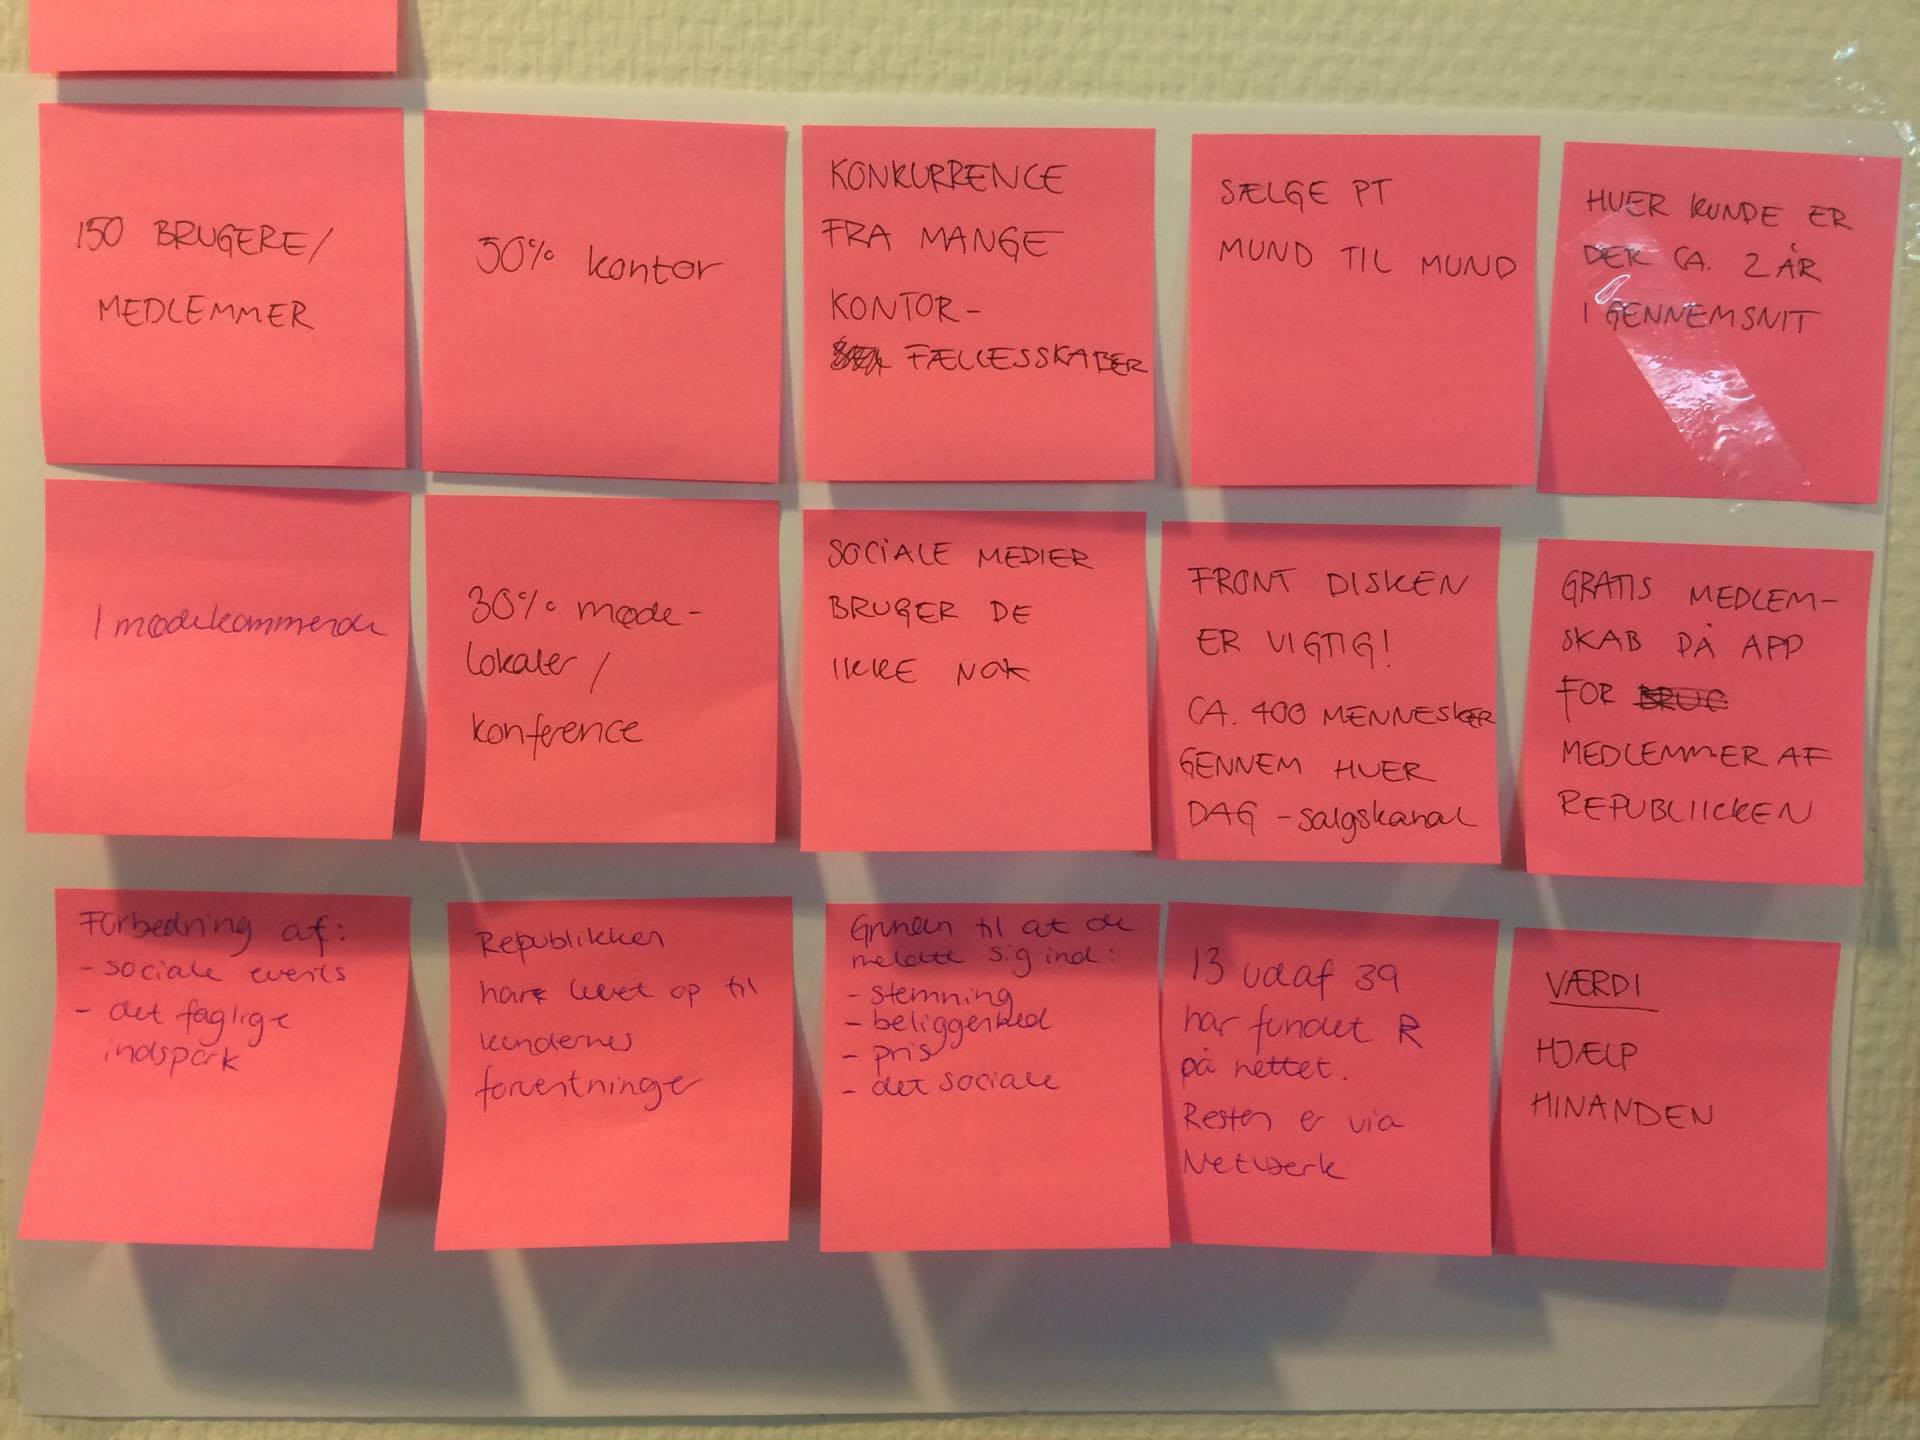 150 BRUGERE/
MEDLEMMER
50% kontor
KONKURRENCE
FRA MANGE
KONTOR-
FÆLLESSKABER
SÆLGE PT
MUND TIL MUND
HVER KUNDE ER
DER CA. 2 ÅR
I GENNEMSNIT
Imødekommende
30% møde-
lokaler /
konference
SOCIALE MEDIER
BRUGER DE
IKKE NOK
FRONT DISKEN
ER VIGTIG!
CA. 400 MENNESKER
GENNEM HVER
DAG - salgskanal
GRATIS MEDLEM-
SKAB PÅ APP
FOR BRUG
MEDLEMMER AF
REPUBLIKKEN
Forbedning af:
- sociale events
- det faglige
indspark
Republikken
har levet op til
kundernes
forventninger
Grunden til at de
meldte sig ind:
- stemning
- beliggenhed
- pris
- det sociale
13 udaf 39
har fundet R
på nettet.
Resten er via
Netværk
VÆRDI
HJÆLP
HINANDEN